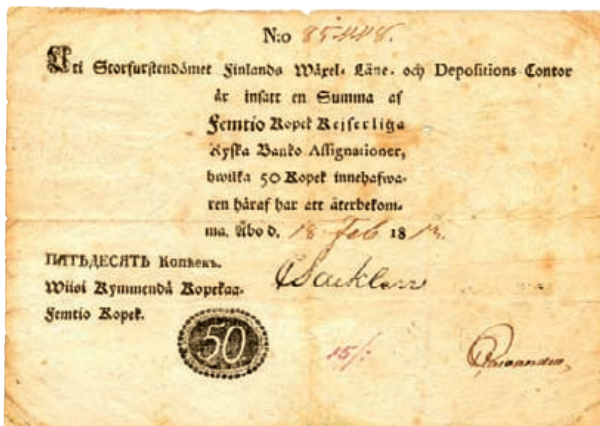 N:o 85448.
Uti Storfurstendömet Finlands Wäxel- Låne- och Depositions Contor
är insatt en Summa af
Femtio Kopek Kejserliga
Ryska Banko Assignationer,
hwilka 50 Kopek innehafwa-
ren häraf har att återbekom-
ma. Åbo d. 18 Feb 18
ПЯТЬДЕСЯТЬ Копѣекъ.
Wiisi Kymmendä Kopekaa.
Femtio Kopek.
50